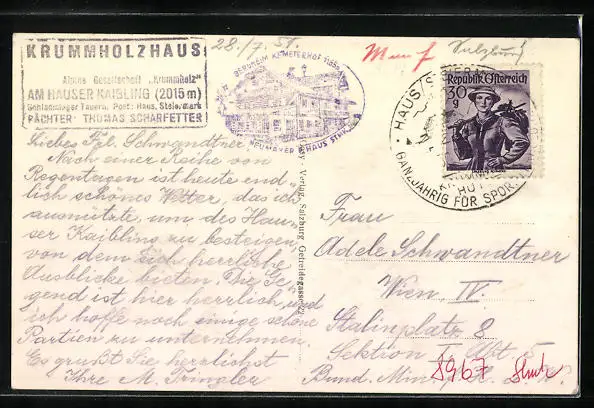 KRUMMHOLZHAUS
Alpine Gesellschaft „Krummholz“
AM HAUSER KAIBLING (2015 m)
Schladminger Tauern. Post: Haus, Steiermark
PÄCHTER: THOMAS SCHARFETTER
28./7. 51.
BERGHEIM KEMETERHOF 1155m
HAUS STMK.
Salzburg
Republik Österreich
30
g
HAUS
GANZJÄHRIG FÜR SPORT
Liebes Frl. Schwandtner
Nach einer Reihe von
Regentagen ist heute end=
lich schönes Wetter, das ich
ausnützte, um den Hau=
ser Kaibling zu besteigen,
von dem sich herrliche
Ausblicke bieten. Die Ge=
gend ist hier herrlich, und
ich hoffe noch einige schöne
Partien zu unternehmen.
Es grüßt Sie herzlichst
Ihre M. Tringler
Verlag, Salzburg Getreidegasse 22
Frau
Adele Schwandtner
Wien, IV.
Stalinplatz 8
Sektion V, Abt. 5
Bund. Min.
8967